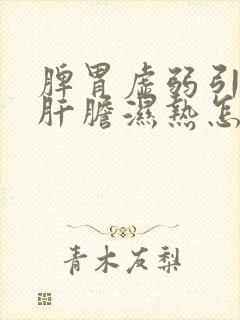 脾胃虚弱引
肝膽濕热怎
青木友梨